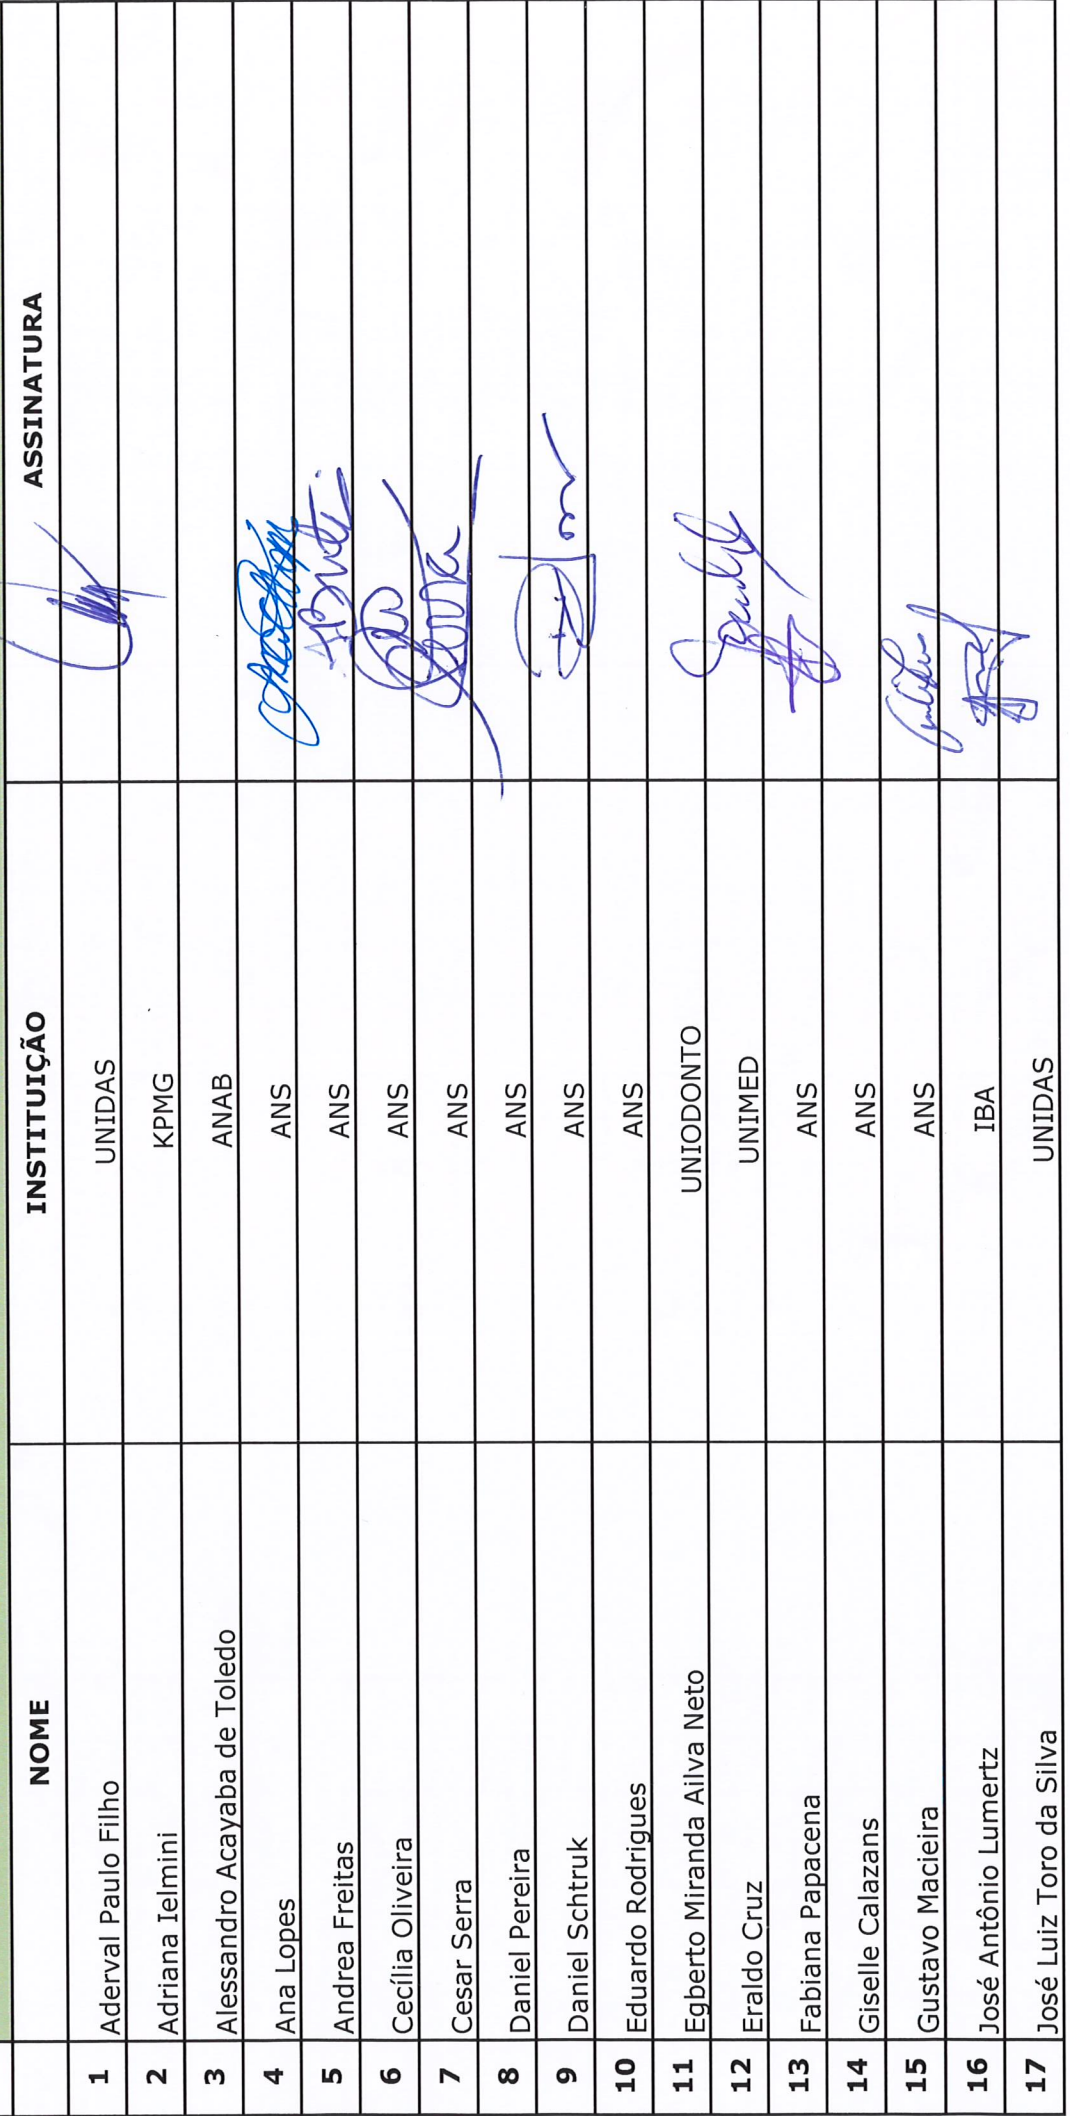 NOME INSTITUIÇÃO ASSINATURA
1 Aderval Paulo Filho UNIDAS
2 Adriana Ielmini KPMG
3 Alessandro Acayaba de Toledo ANAB
4 Ana Lopes ANS
5 Andrea Freitas ANS
6 Cecília Oliveira ANS
7 Cesar Serra ANS
8 Daniel Pereira ANS
9 Daniel Schtruk ANS
10 Eduardo Rodrigues ANS
11 Egberto Miranda Ailva Neto UNIODONTO
12 Eraldo Cruz UNIMED
13 Fabiana Papacena ANS
14 Giselle Calazans ANS
15 Gustavo Macieira ANS
16 José Antônio Lumertz IBA
17 José Luiz Toro da Silva UNIDAS